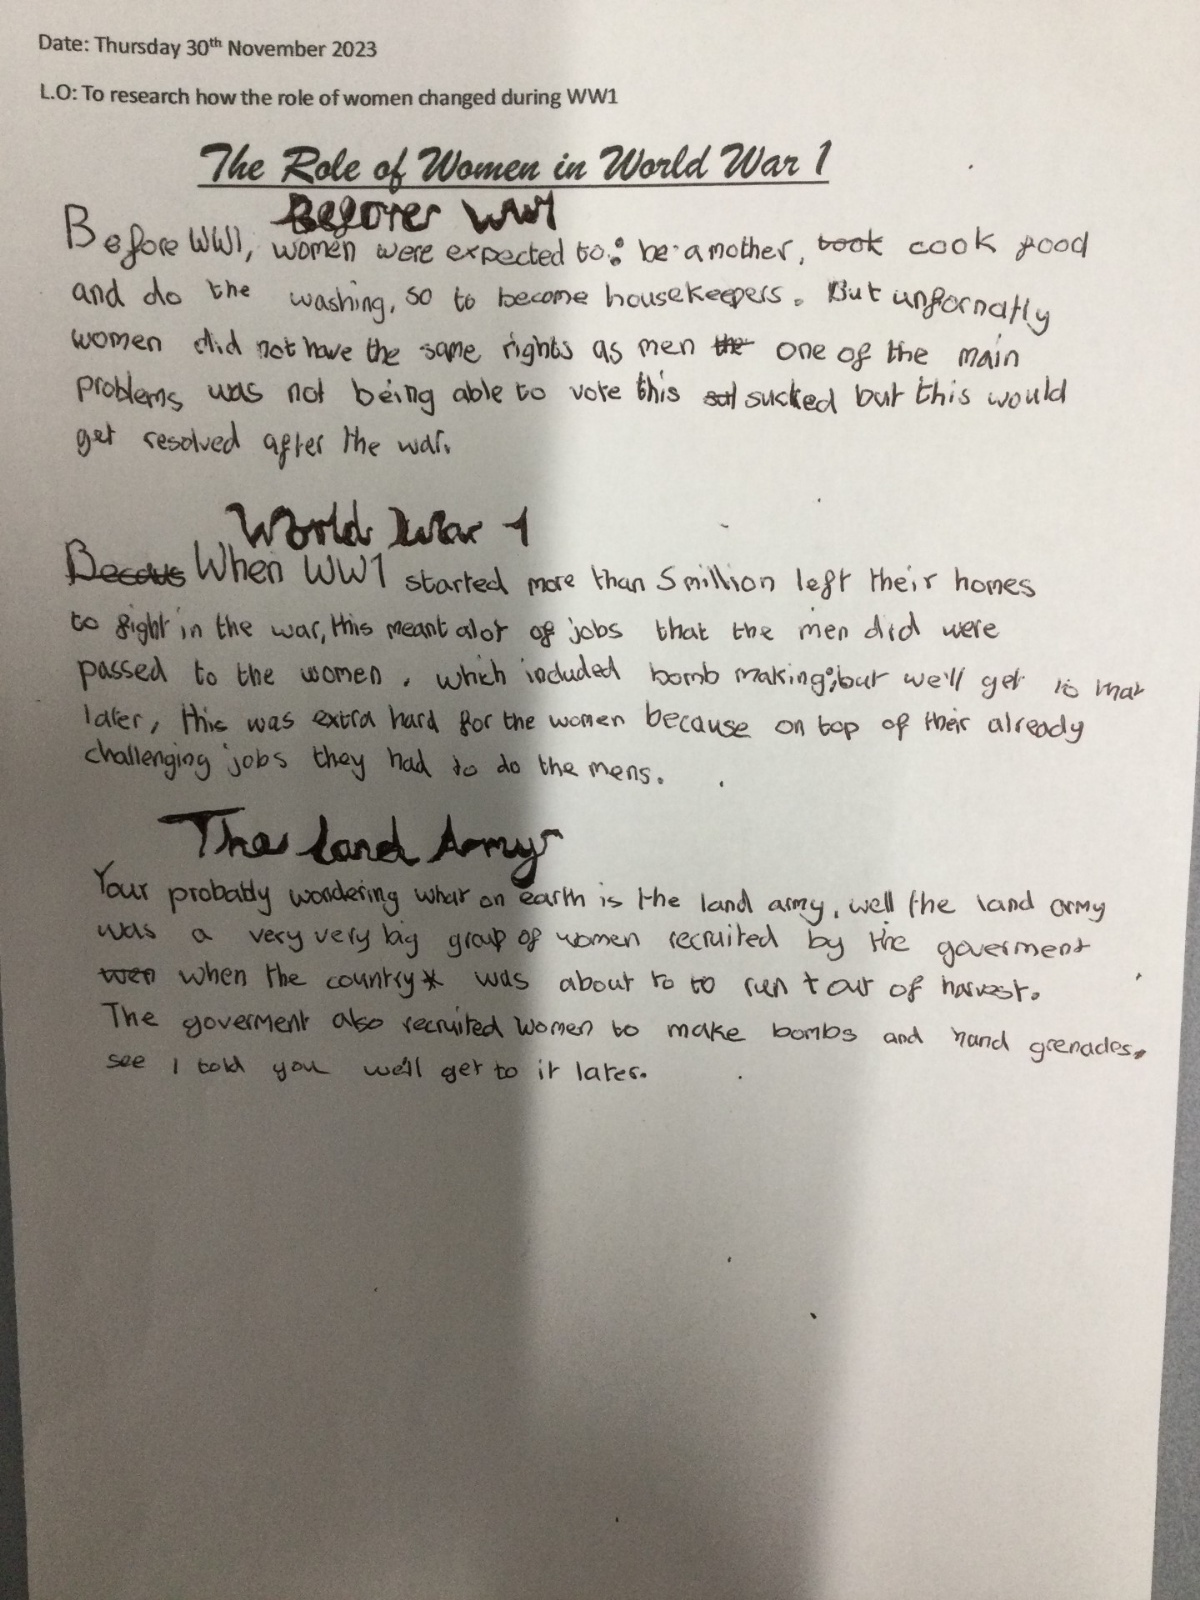 Date: Thursday 30th November 2023
L.O: To research how the role of women changed during WW1
The Role of Women in World War 1
Before WW1
Before WW1, women were expected to: be a mother, took cook food
and do the washing, so to become housekeepers. But unfornatly
women did not have the same rights as men the one of the main
problems was not being able to vote this sucked but this would
get resolved after the war.
World War 1
Becaus When WW1 started more than 5 million left their homes
to fight in the war, this meant alot of jobs that the men did were
passed to the women, which included bomb making; but we'll get to that
later, this was extra hard for the women because on top of their already
challenging jobs they had to do the mens.
The land Army
Your probably wondering what on earth is the land army, well the land army
was a very very big group of women recruited by the goverment
wen when the country* was about to to run t out of harvest.
The goverment also recruited women to make bombs and hand grenades.
see I told you we'll get to it later.